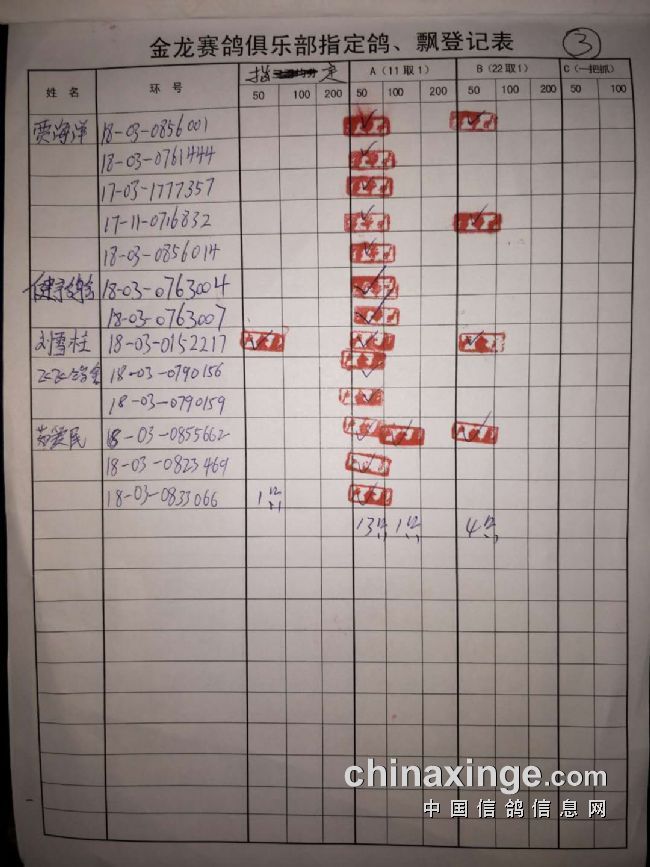 金龙赛鸽俱乐部指定鸽、飘登记表 ③
姓名 环号 指定 A(11取1) B(22取1) C(一把抓)
50 100 200 50 100 200 50 100 200 50 100
贾海洋 18-03-0856001
18-03-0761444
17-03-1777357
17-11-0716832
18-03-0856014
18-03-0763004
18-03-0763007
刘雪柱 18-03-0152217
18-03-0790156
18-03-0790159
爱民 18-03-0855662
18-03-0823469
18-03-0833066 1只
13只 1只 4只
chinaxinge.com
中国信鸽信息网